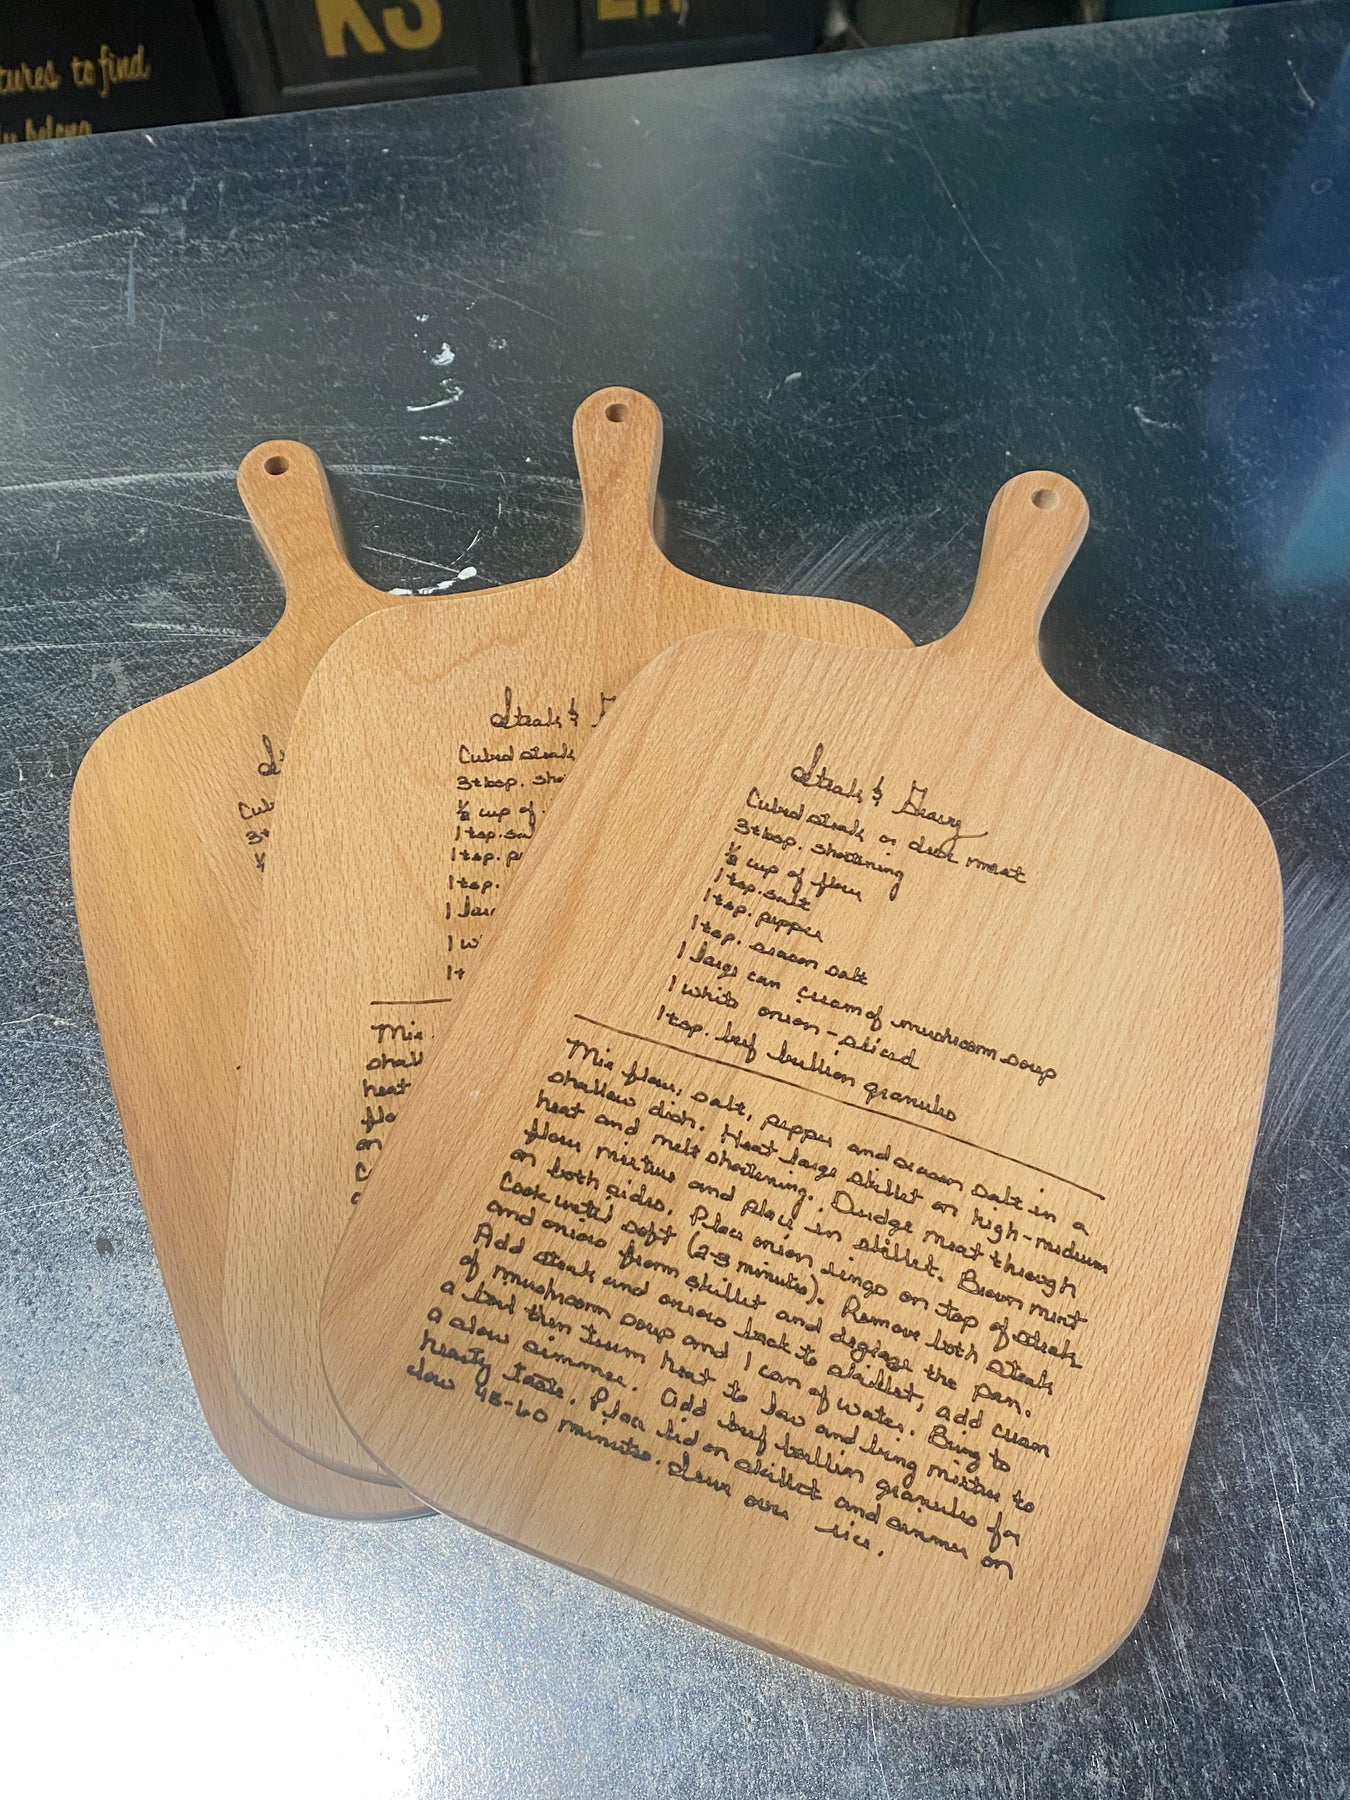 KS
tures to find
belong
Steak &
Cubed steak
3 tbsp. sho
½ cup of
1 tsp. sal
1 tsp. p
1 tsp.
1 lar
1 w
1 t
Mix
shall
heat
flo
on
Co
Cub
3 t
Steak & Gravy
Cubed steak or deer meat
3 tbsp. shortening
½ cup of flour
1 tsp. salt
1 tsp. pepper
1 tsp. season salt
1 large can cream of mushroom soup
1 white onion - sliced
1 tsp. beef bullion granules
Mix flour, salt, pepper and season salt in a
shallow dish. Heat large skillet on high-medium
heat and melt shortening. Dudge meat through
flour mixture and place in skillet. Brown meat
on both sides. Place onion rings on top of steak
Cook until soft (2-3 minutes). Remove both steak
and onions from skillet and deglaze the pan.
Add steak and onions back to skillet, add cream
of mushroom soup and 1 can of water. Bring to
a boil then turn heat to low and bring mixture to
a slow simmer. Add beef bullion granules for
hearty taste. Place lid on skillet and simmer on
low 45-60 minutes. Serve over rice.